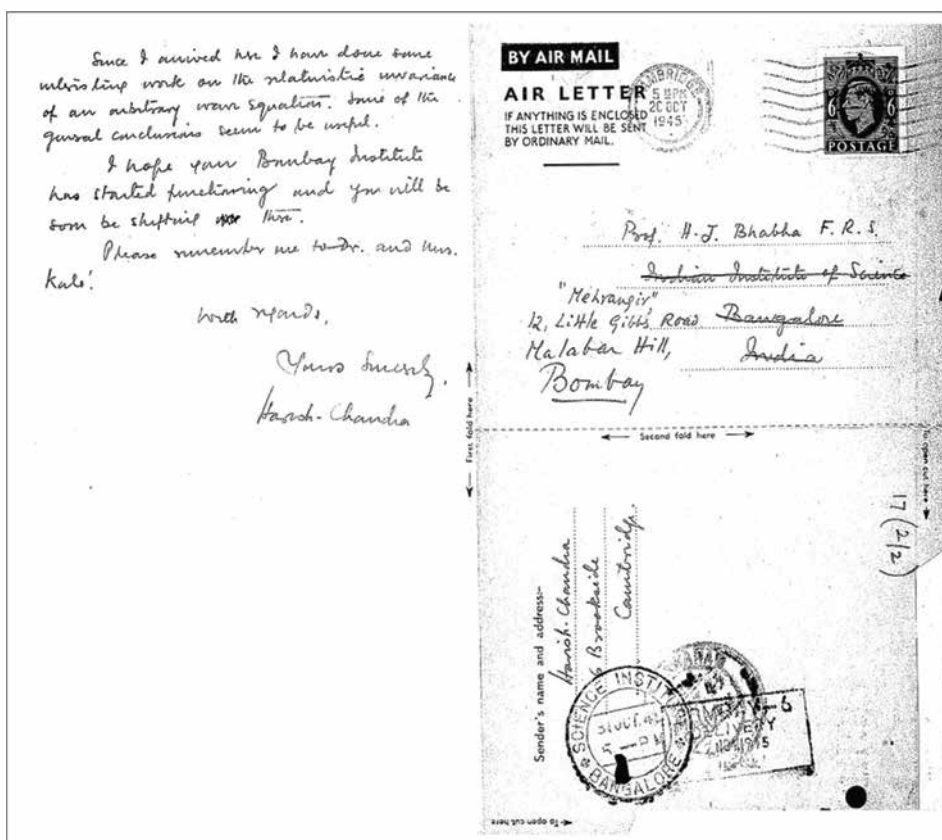 Since I arrived here I have done some
interesting work on the relativistic invariance
of an arbitrary wave equation. Some of the
general conclusions seem to be useful.
I hope your Bombay Institute
has started functioning and you will be
soon be shifting there.
Please remember me to Dr. and Mrs.
Kale!
With regards,
Yours Sincerely,
Harish-Chandra
BY AIR MAIL
AIR LETTER
IF ANYTHING IS ENCLOSED
THIS LETTER WILL BE SENT
BY ORDINARY MAIL.
CAMBRIDGE
5 PM
20 OCT
1945
6 6
POSTAGE
Prof. H. J. Bhabha F. R. S.
Indian Institute of Science
"Mehrangir"
12, Little Gibbs Road Bangalore
Malabar Hill, India
Bombay
First fold here
Second fold here
To open cut here
17 (2/2)
Sender's name and address:-
Harish-Chandra
6 Brookside
Cambridge.
SCIENCE INSTITUTE
31 OCT. 45
5 - PM
BANGALORE
BOMBAY-6
DELIVERY
To open cut here